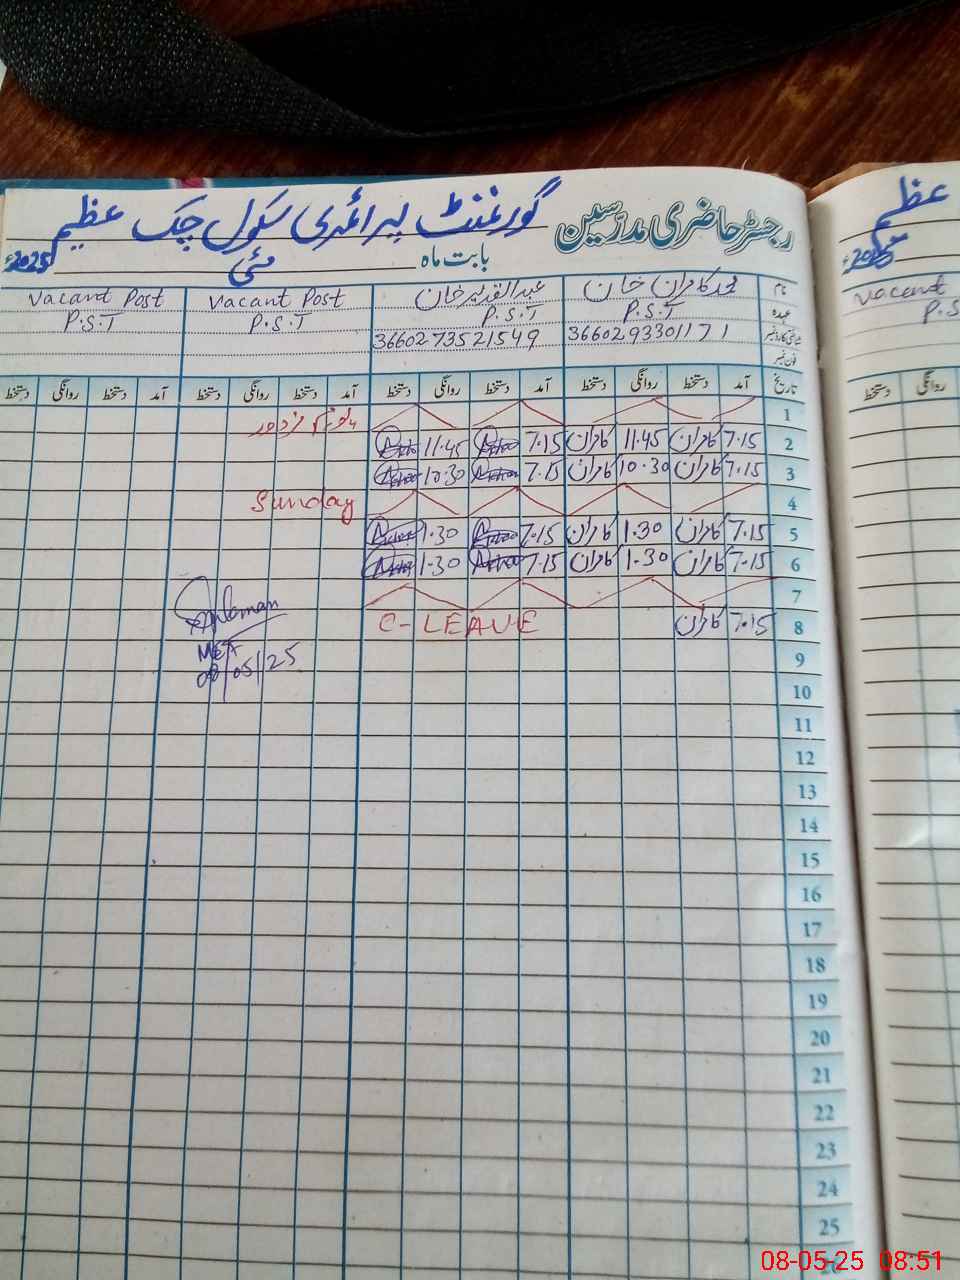 رجسٹر حاضری مدرسین گورنمنٹ پرائمری سکول چک عظیم
بابت ماہ مئی 2025ء
نام محمد کامران خان عبدالقدیر خان Vacant Post Vacant Post
عہدہ P.S.T P.S.T P.S.T P.S.T
3660293301171 3660273521549
فون نمبر
تاریخ آمد دستخط روانگی دستخط آمد دستخط روانگی دستخط آمد دستخط روانگی دستخط آمد دستخط روانگی دستخط
1
2 7.15 کامران 11.45 کامران 7.15 11.45
3 7.15 کامران 10.30 کامران 7.15 10.30
4 Sunday
5 7.15 کامران 1.30 کامران 7.15 1.30
6 7.15 کامران 1.30 کامران 7.15 1.30
7
8 7.15 کامران C-LEAVE
MEA
08/05/25
9
10
11
12
13
14
15
16
17
18
19
20
21
22
23
24
25
26
عظیم
2025ء
Vacant
P.S
روانگی دستخط
08-05-25 08:51